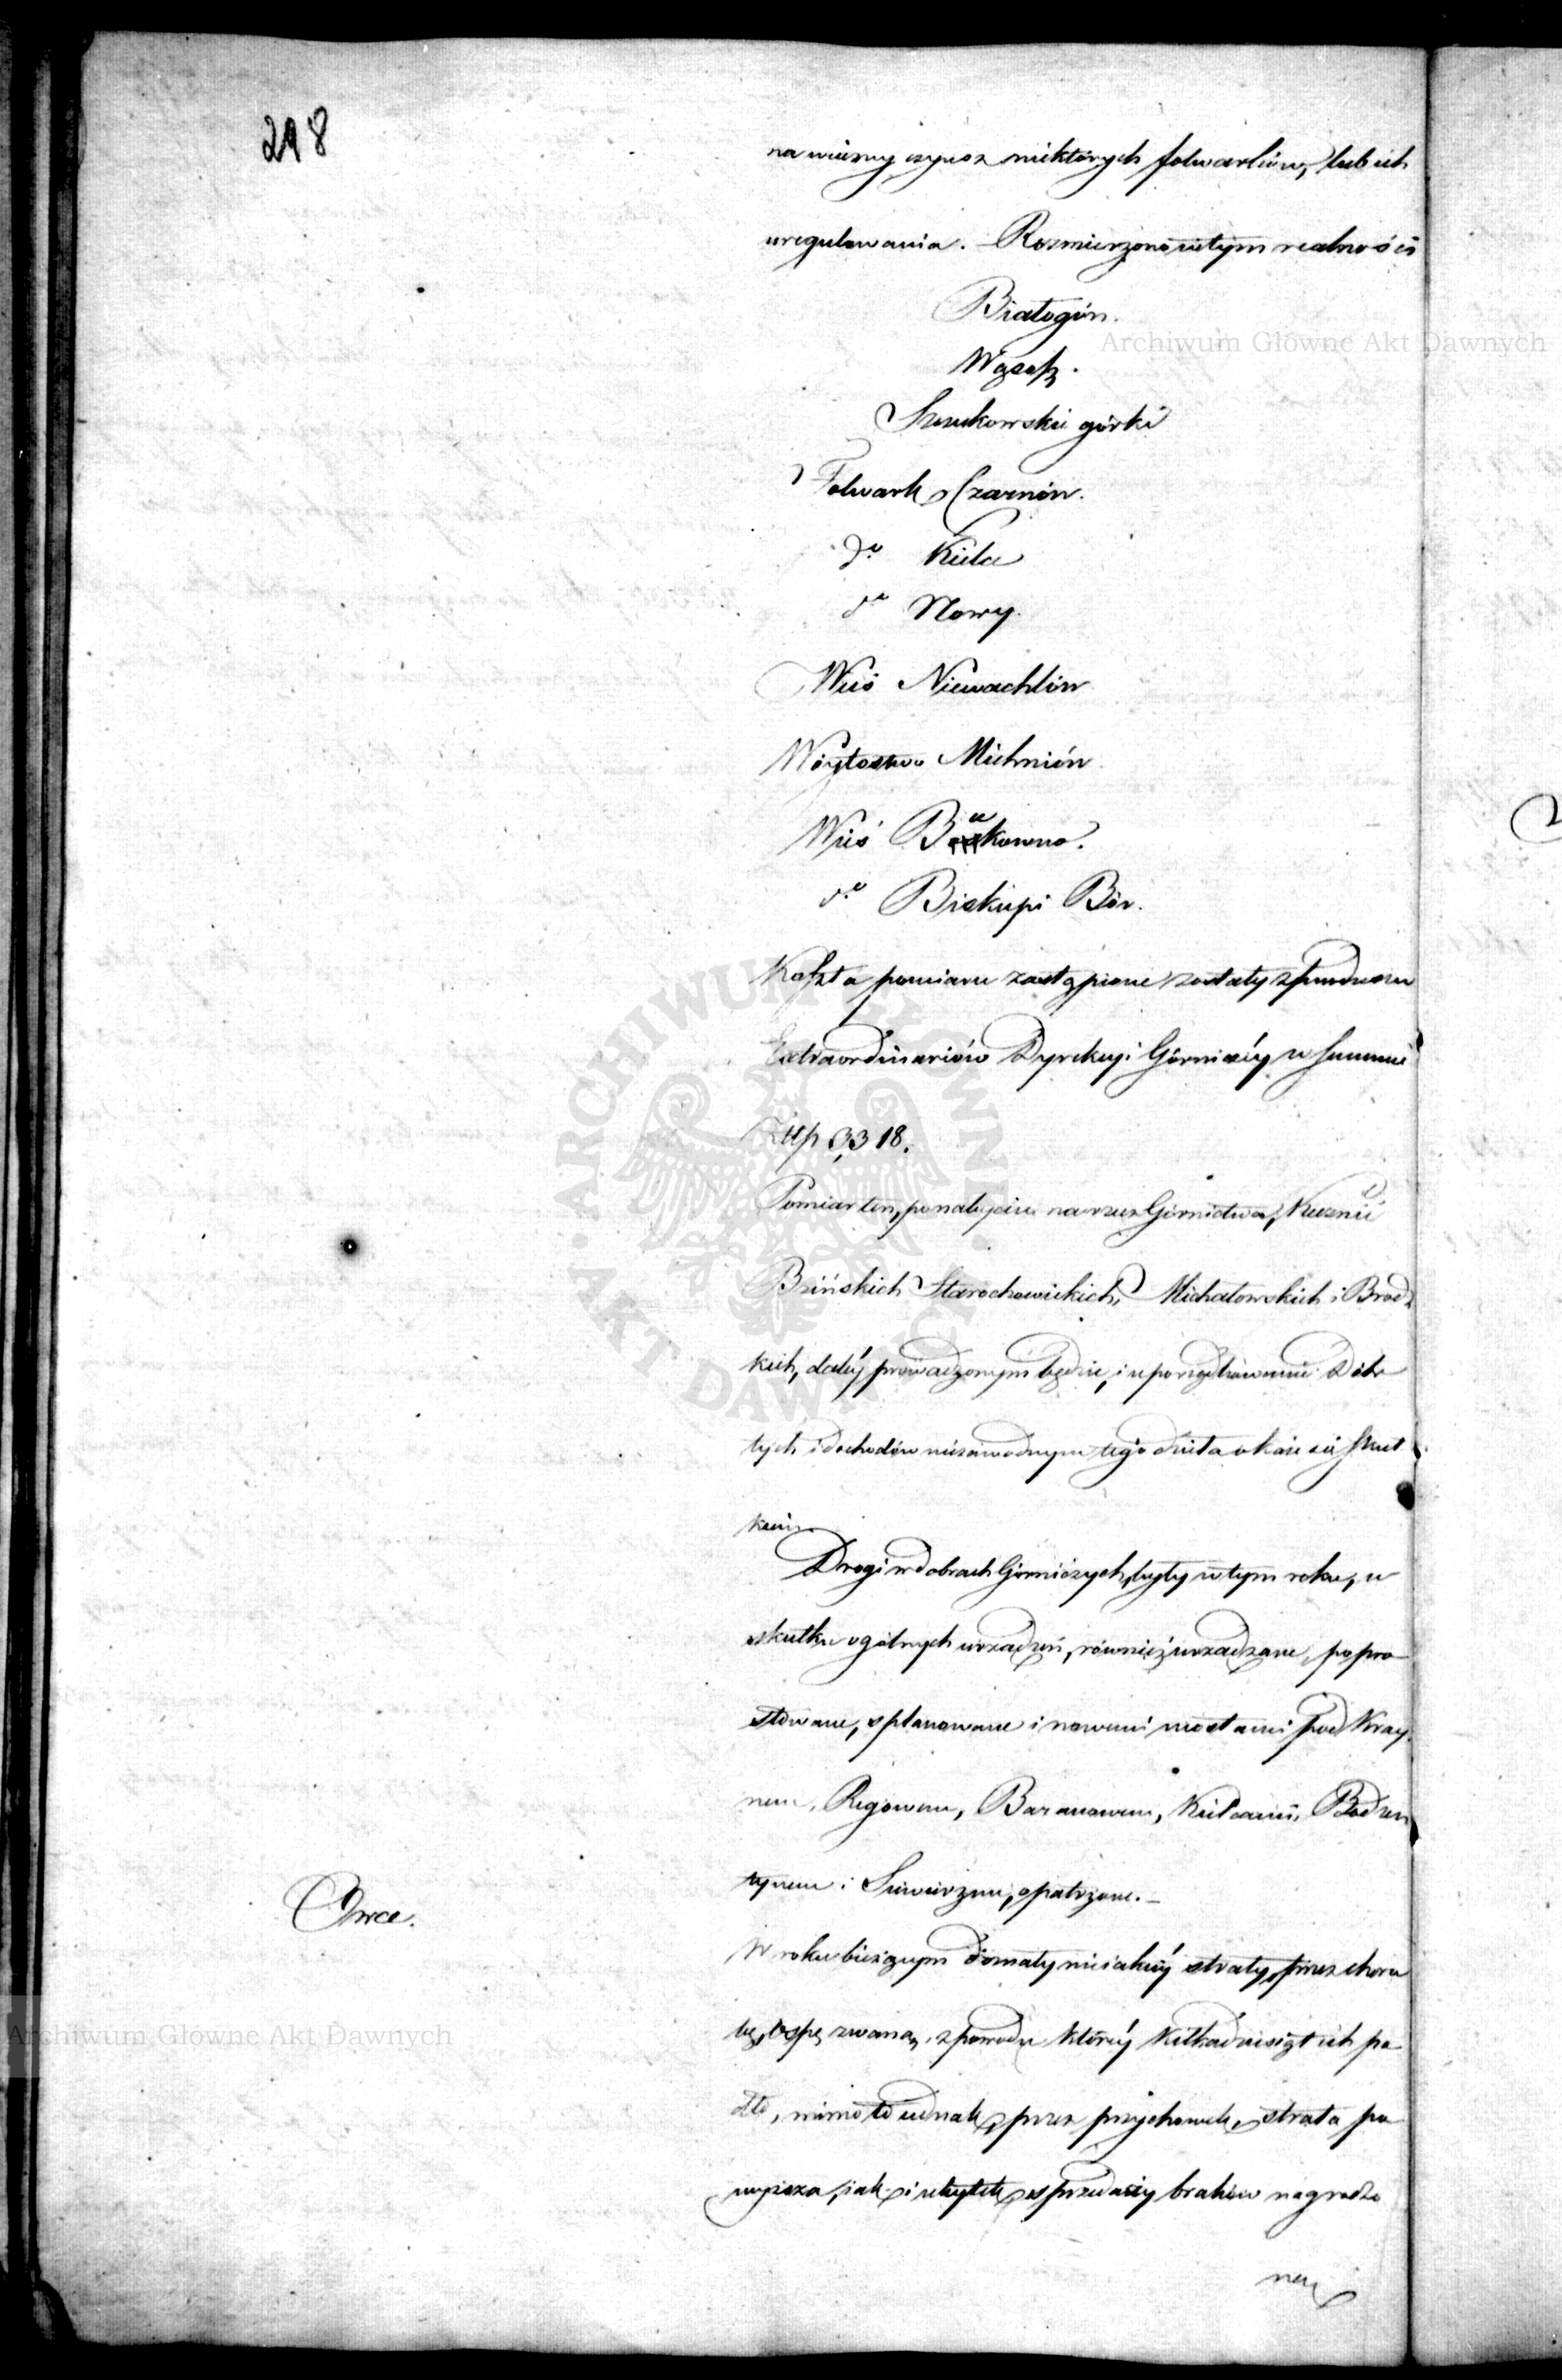 218
na wieczny czynsz niektórych folwarków, lub ich
uregulowania. Rozmierzono w tym realności
Białogón.
Wąsosz.
Szczukowskie górki
Folwark Czarnów.
do Kiele
do Nowy.
Wieś Niewachlów
Wóytostwo Michniów.
Wieś Bukowno.
do Biskupi Bór.
Koszta pomiaru zastąpione zostały z funduszu
Extraordinariów Dyrekcyi Górniczéy w Summie
Złtp 3,318.
Pomiar ten, po nabyciu na rzecz Górnictwa, Kuźnic
Bzińskich Starochowickich, Michałowskich i Brodz
kich, daléy prowadzonym będzie, i uporządkowanie Dóbr
tych i dochodów niezawodnym tego dzieła okaże się skut
kiem.
Drogi w dobrach Górniczych, były w tym roku, w
skutku ogólnych urządzeń, również urządzane, popro
stowane, splanowane i nowemi mostami pod Kray
nem, Rejowem, Baranowem, Kielcami, Bodzen
tynem i Siewierzem, opatrzone.
Owce.
W roku bieżącym doznały niejakiéy straty, przez choro
bę, ospę zwaną, z powodu któréy kilkadziesiąt ich pa
dło, mimo to jednak, przez przychowek, strata po
wyższa, jak i ubytek, z sprzedaży braków nagrodzo
ne